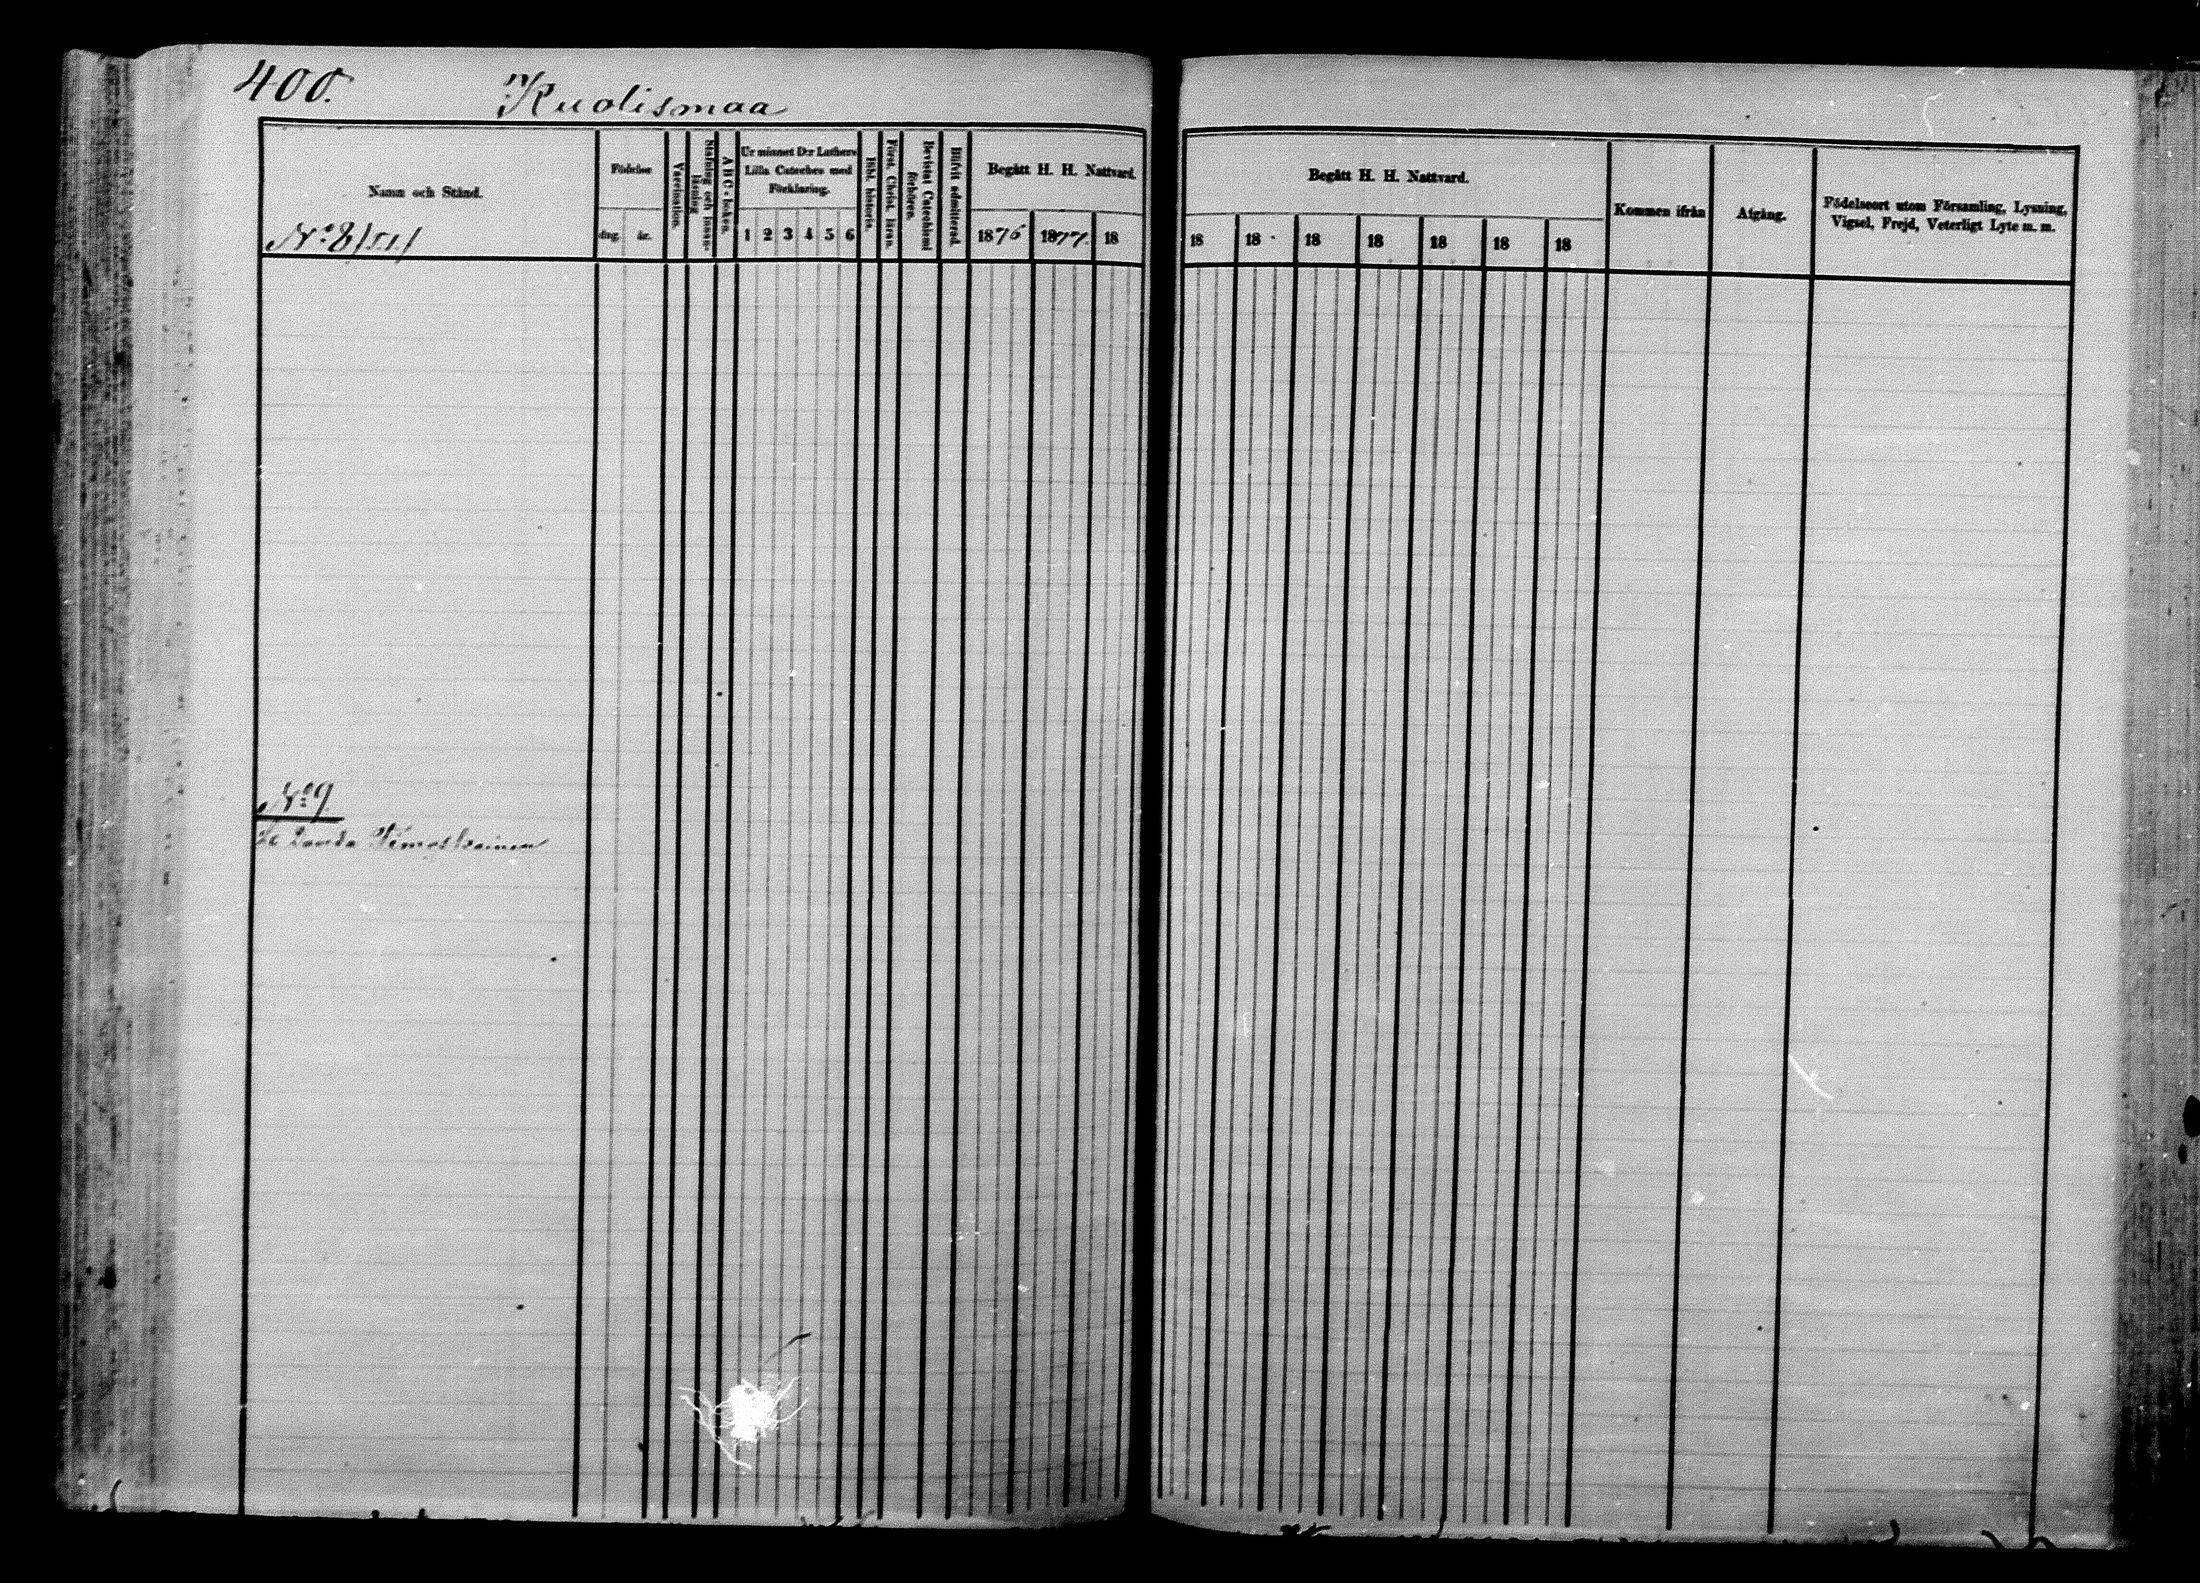 400.
Kuolismaa
Namn och Stånd.
Födelse
dag. år.
Vaccination.
Stafning och innan-läsning
A B C-boken.
Ur minnet D:r Luthers
Lilla Cateches med
Förklaring.
1 2 3 4 5 6
Bibl. historia.
Först. Christ. läran.
Bevistat Catechismi förhören.
Blifvit admitterad.
Begått H. H. Nattvard.
1876 1877. 18
Begått H. H. Nattvard.
18 18 18 18 18 18 18
Kommen ifrån
Afgång.
Födelseort utom Församling, Lysning,
Vigsel, Frejd, Veterligt Lyte m. m.
No 8/51/
No 9